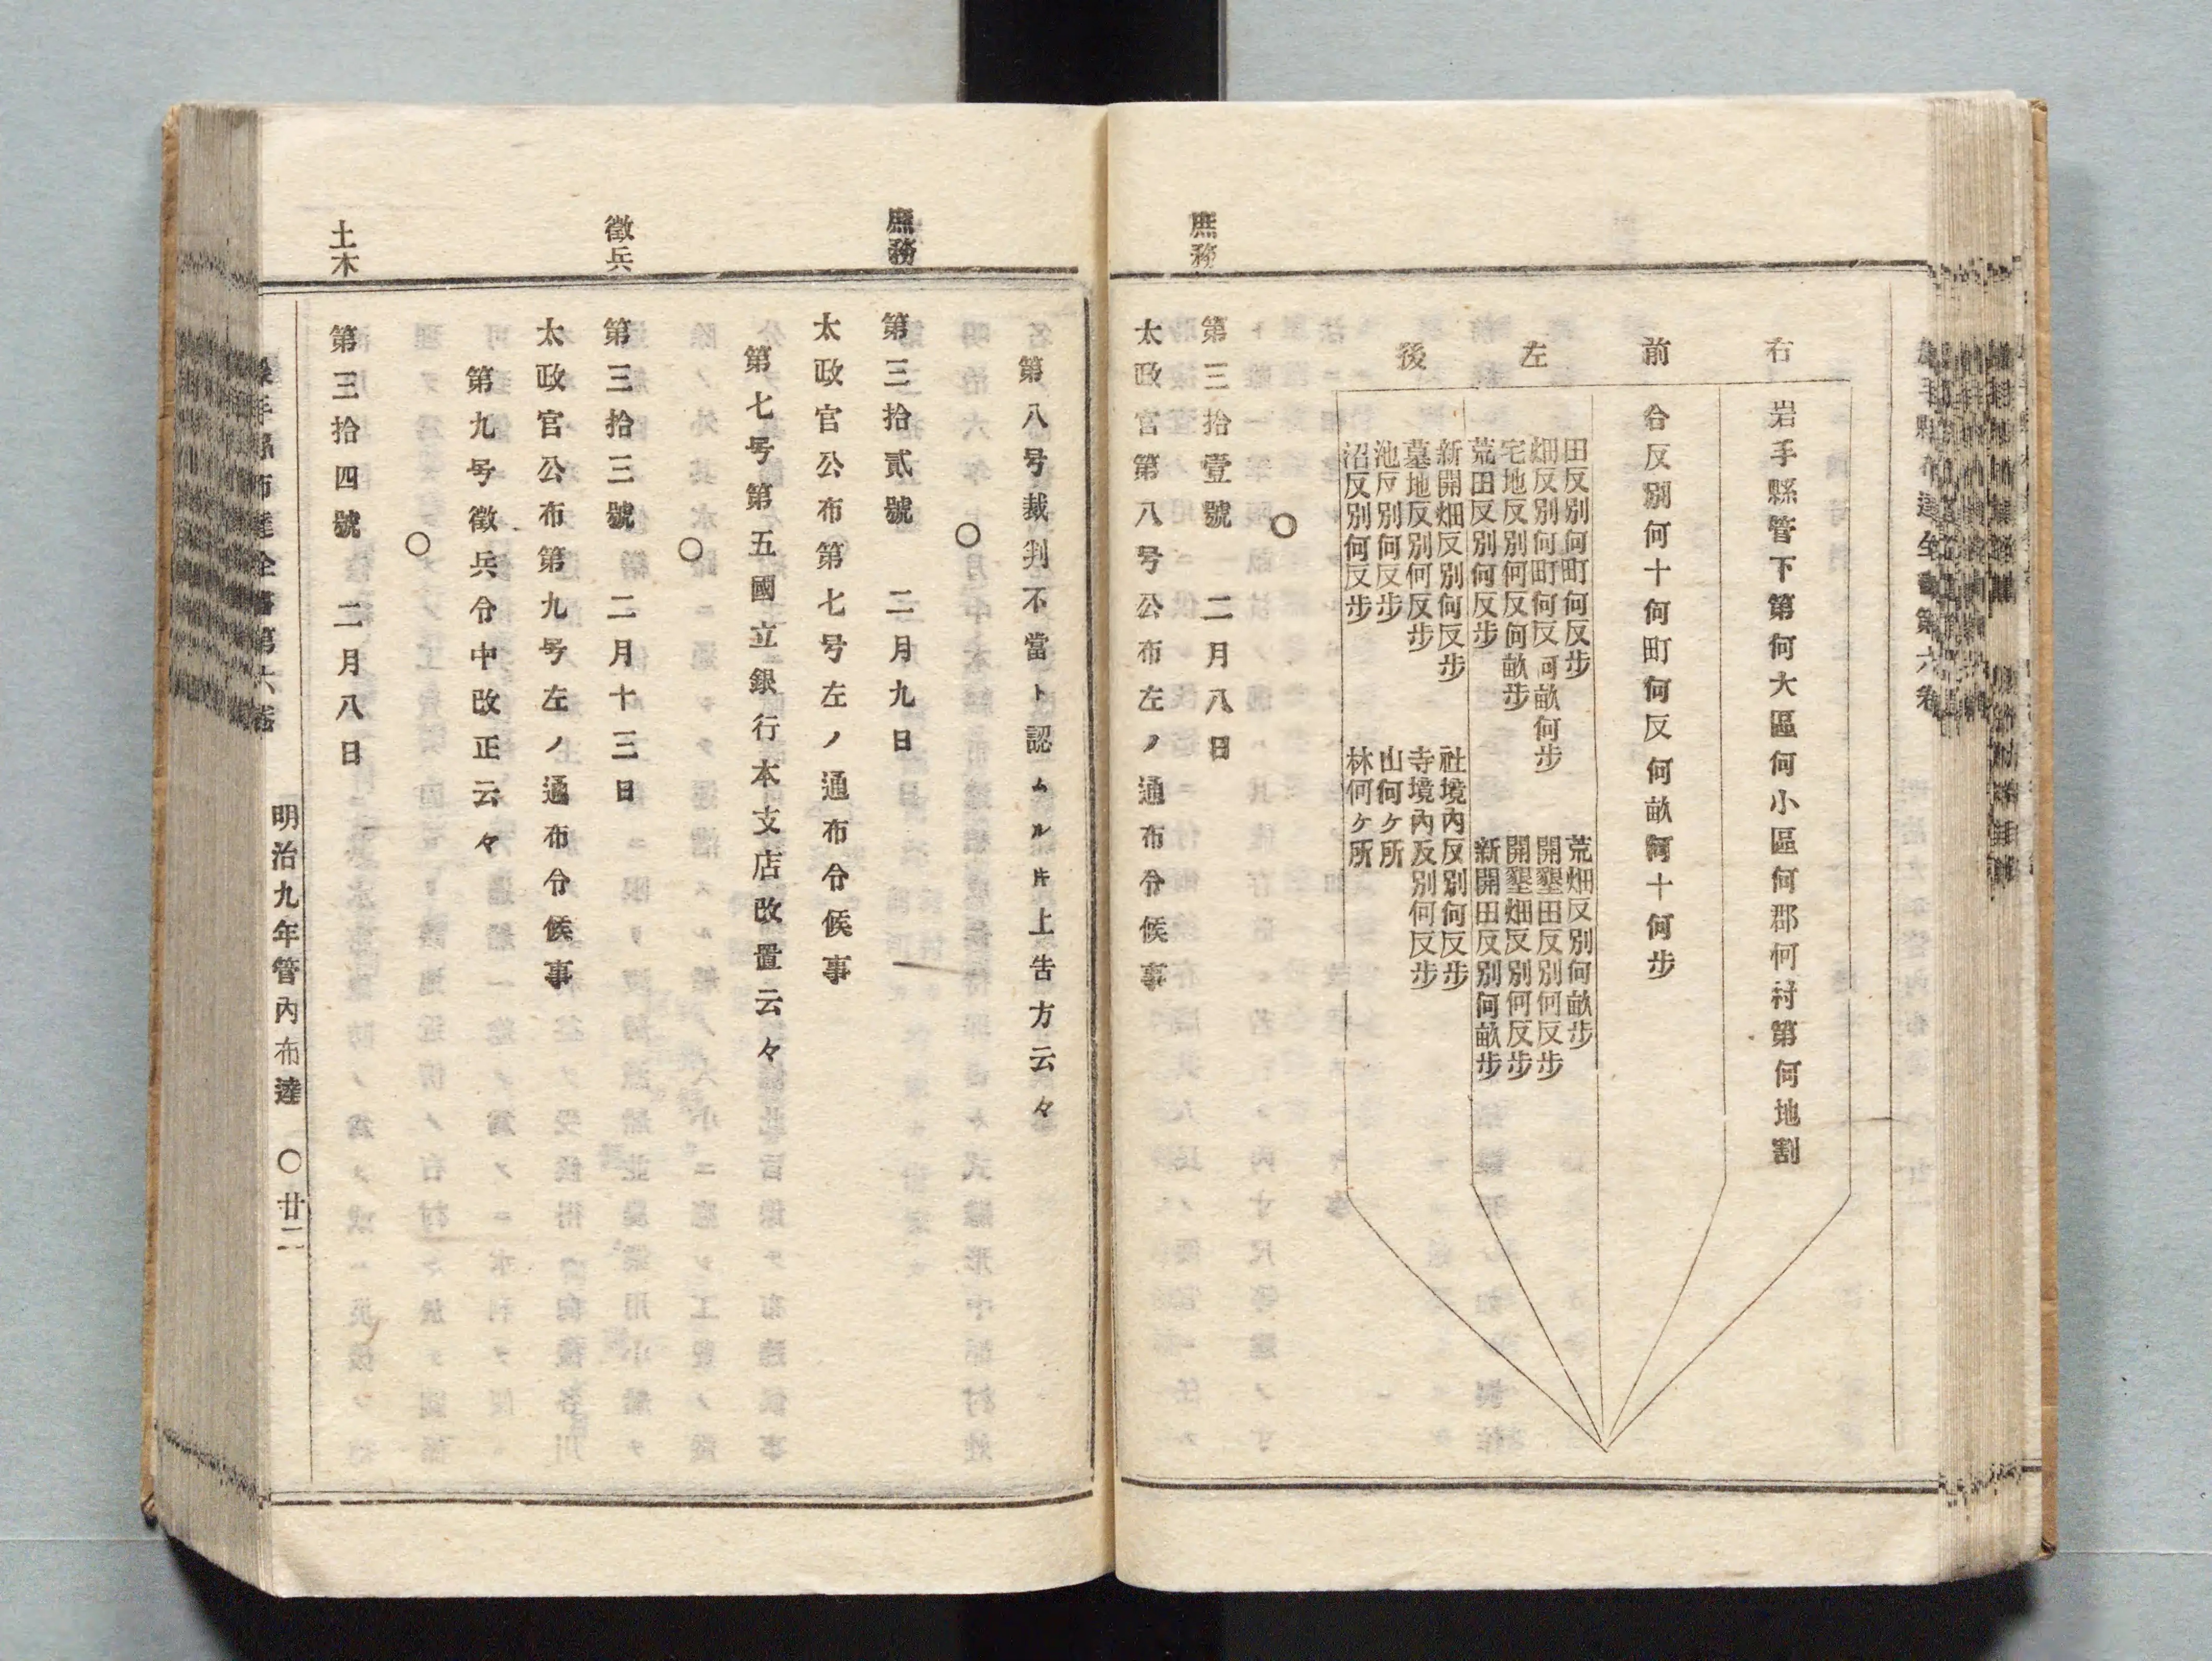 右
岩手縣管下第何大區何小區何郡何村第何地割
前
合反別何十何町何反何畝何十何步
左
田反別何町何反步
畑反別何町何反何畝何步
宅地反別何反何畝步
荒田反別何反步
荒畑反別何畝步
開墾田反別何反步
開墾畑反別何反步
新開田反別何畝步
後
新開畑反別何反步
墓地反別何反步
池反別何反步
沼反別何反步
社境內反別何反步
寺境內反別何反步
山何ヶ所
林何ヶ所
○
庶務
第三拾壹號 二月八日
太政官第八号公布左ノ通布令候事
第八号裁判不當ト認ムルㇳ𪜈上告方云々
○
庶務
第三拾貳號 二月九日
太政官公布第七号左ノ通布令候事
第七号第五國立銀行本支店改置云々
○
徵兵
第三拾三號 二月十三日
太政官公布第九号左ノ通布令候事
第九号徵兵令中改正云々
○
土木
第三拾四號 二月八日
岩手縣布達全書第六卷 明治九年管內布達 ○廿二